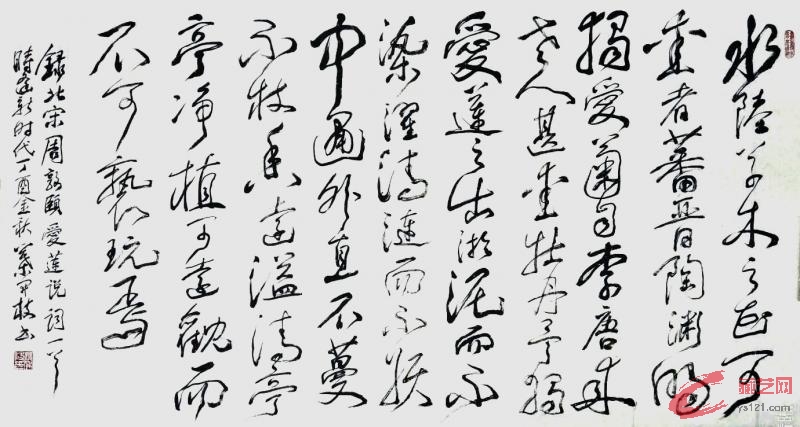 水陸草木之花可
愛者蕃晉陶淵明
獨愛菊自李唐来
世人甚愛牡丹予獨
愛蓮之出淤泥而不
染濯清漣而不妖
中通外直不蔓
不枝香遠溢清亭
亭净植可遠觀而
不可褻玩焉
錄北宋周敦頤愛蓮说詞一首
時逢新时代丁酉金秋书
艺网
ys121.com